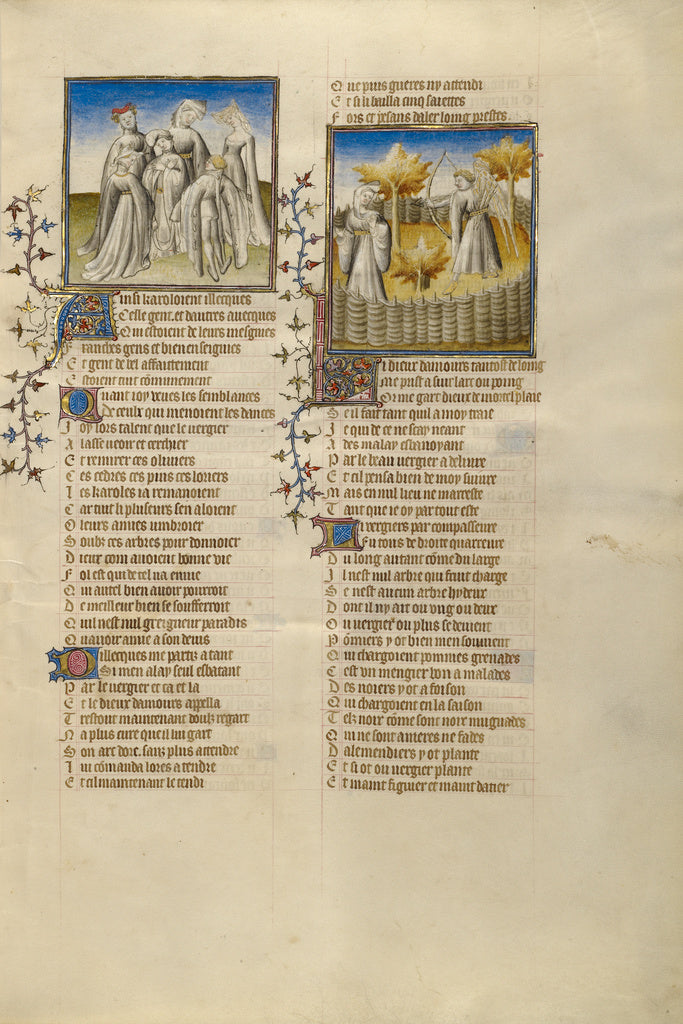 Ainsi karoloient illecques
Celle gent. et dautres avecques
Qui estoient de leurs mesgnies
Franches gens et bien enseignies
Et gent de bel affaitement
Estoient tuit cōmunement
Quant ioy veues les semblances
De ceulx qui menoient les dances
Joy lors talent que le vergier
Alasse veoir et cerchier
Et remirer ces oliviers
Ces cedres ces pins ces loriers
Les karoles ia remanoient
Car tuit li pluseurs sen aloient
O leurs amies umbroier
Soubz ces arbres pour donnoier
Dieux com avoient bonne vie
Fol est qui de tel na envie
Qui autel bien avoir pourroit
De meilleur bien se soufferroit
Quil nest nul greigneur paradis
Quavoir amie a son devis
Dillecques me partiz atant
Si men alay seul esbatant
Par le vergier et ca et la
Et le dieux damours appella
Trestout maintenant doulz regart
Na plus cure que il lui gart
Son arc dore. sanz plus attendre
Lui cōmanda lores a tendre
Et cil maintenant le tendi
Que puis gueres ny attendi
Et si li bailla cinq saiettes
Fors et pesans daler loing prestes
Li dieux damours tantost de loing
Me prist a suir larc ou poing
Or me gart dieux de mortel plaie
Se il fait tant qu'il a moy traie
Je qui de ce ne scay neant
Ades malay esbanoyant
Par le beau vergier a delivre
Et cil pensa bien de moy suivre
Mais en nul lieu ne marreste
Tant que ie oy par tout este
Li vergiers par compasseure
Fu tous de droite quarreure
Du long autant cōme du large
Il nest nul arbre qui fruit charge
Se nest aucun arbre hydeux
Dont il ny ait ou ung ou deux
Ou vergier ou plus se devient
Pōmiers y ot bien men souvient
Qui chargoient pommes grenades
Cest un mengier bon a malades
Des noiers y ot a foison
Qui chargoient en la saison
Telz noiz cōme sont noix muguades
Qui ne sont ameres ne fades
Dalemendiers y ot plante
Et si ot ou vergier plante
Et maint figuier et maint datier